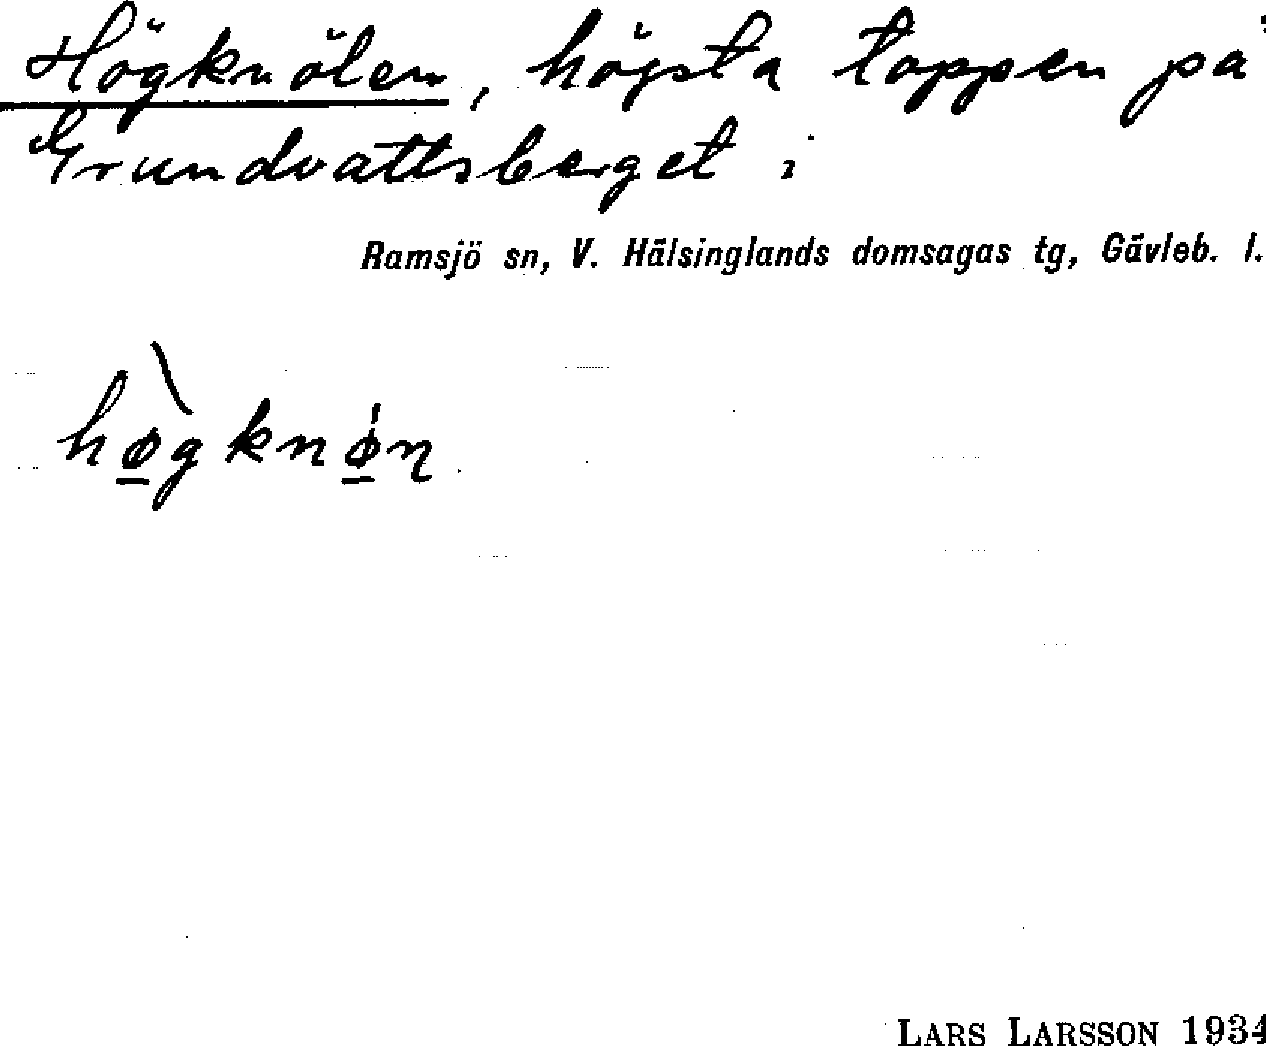 Högknölen, högsta toppen på
Grundvattsberget i
Ramsjö sn, V. Hälsinglands domsagas tg, Gävleb. l.
hø̲̀gknǿ̲n
LARS LARSSON 1934